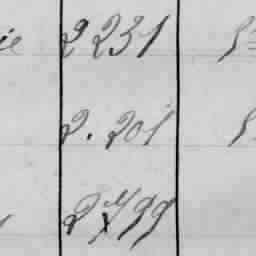 ie 2231
2.201
2799